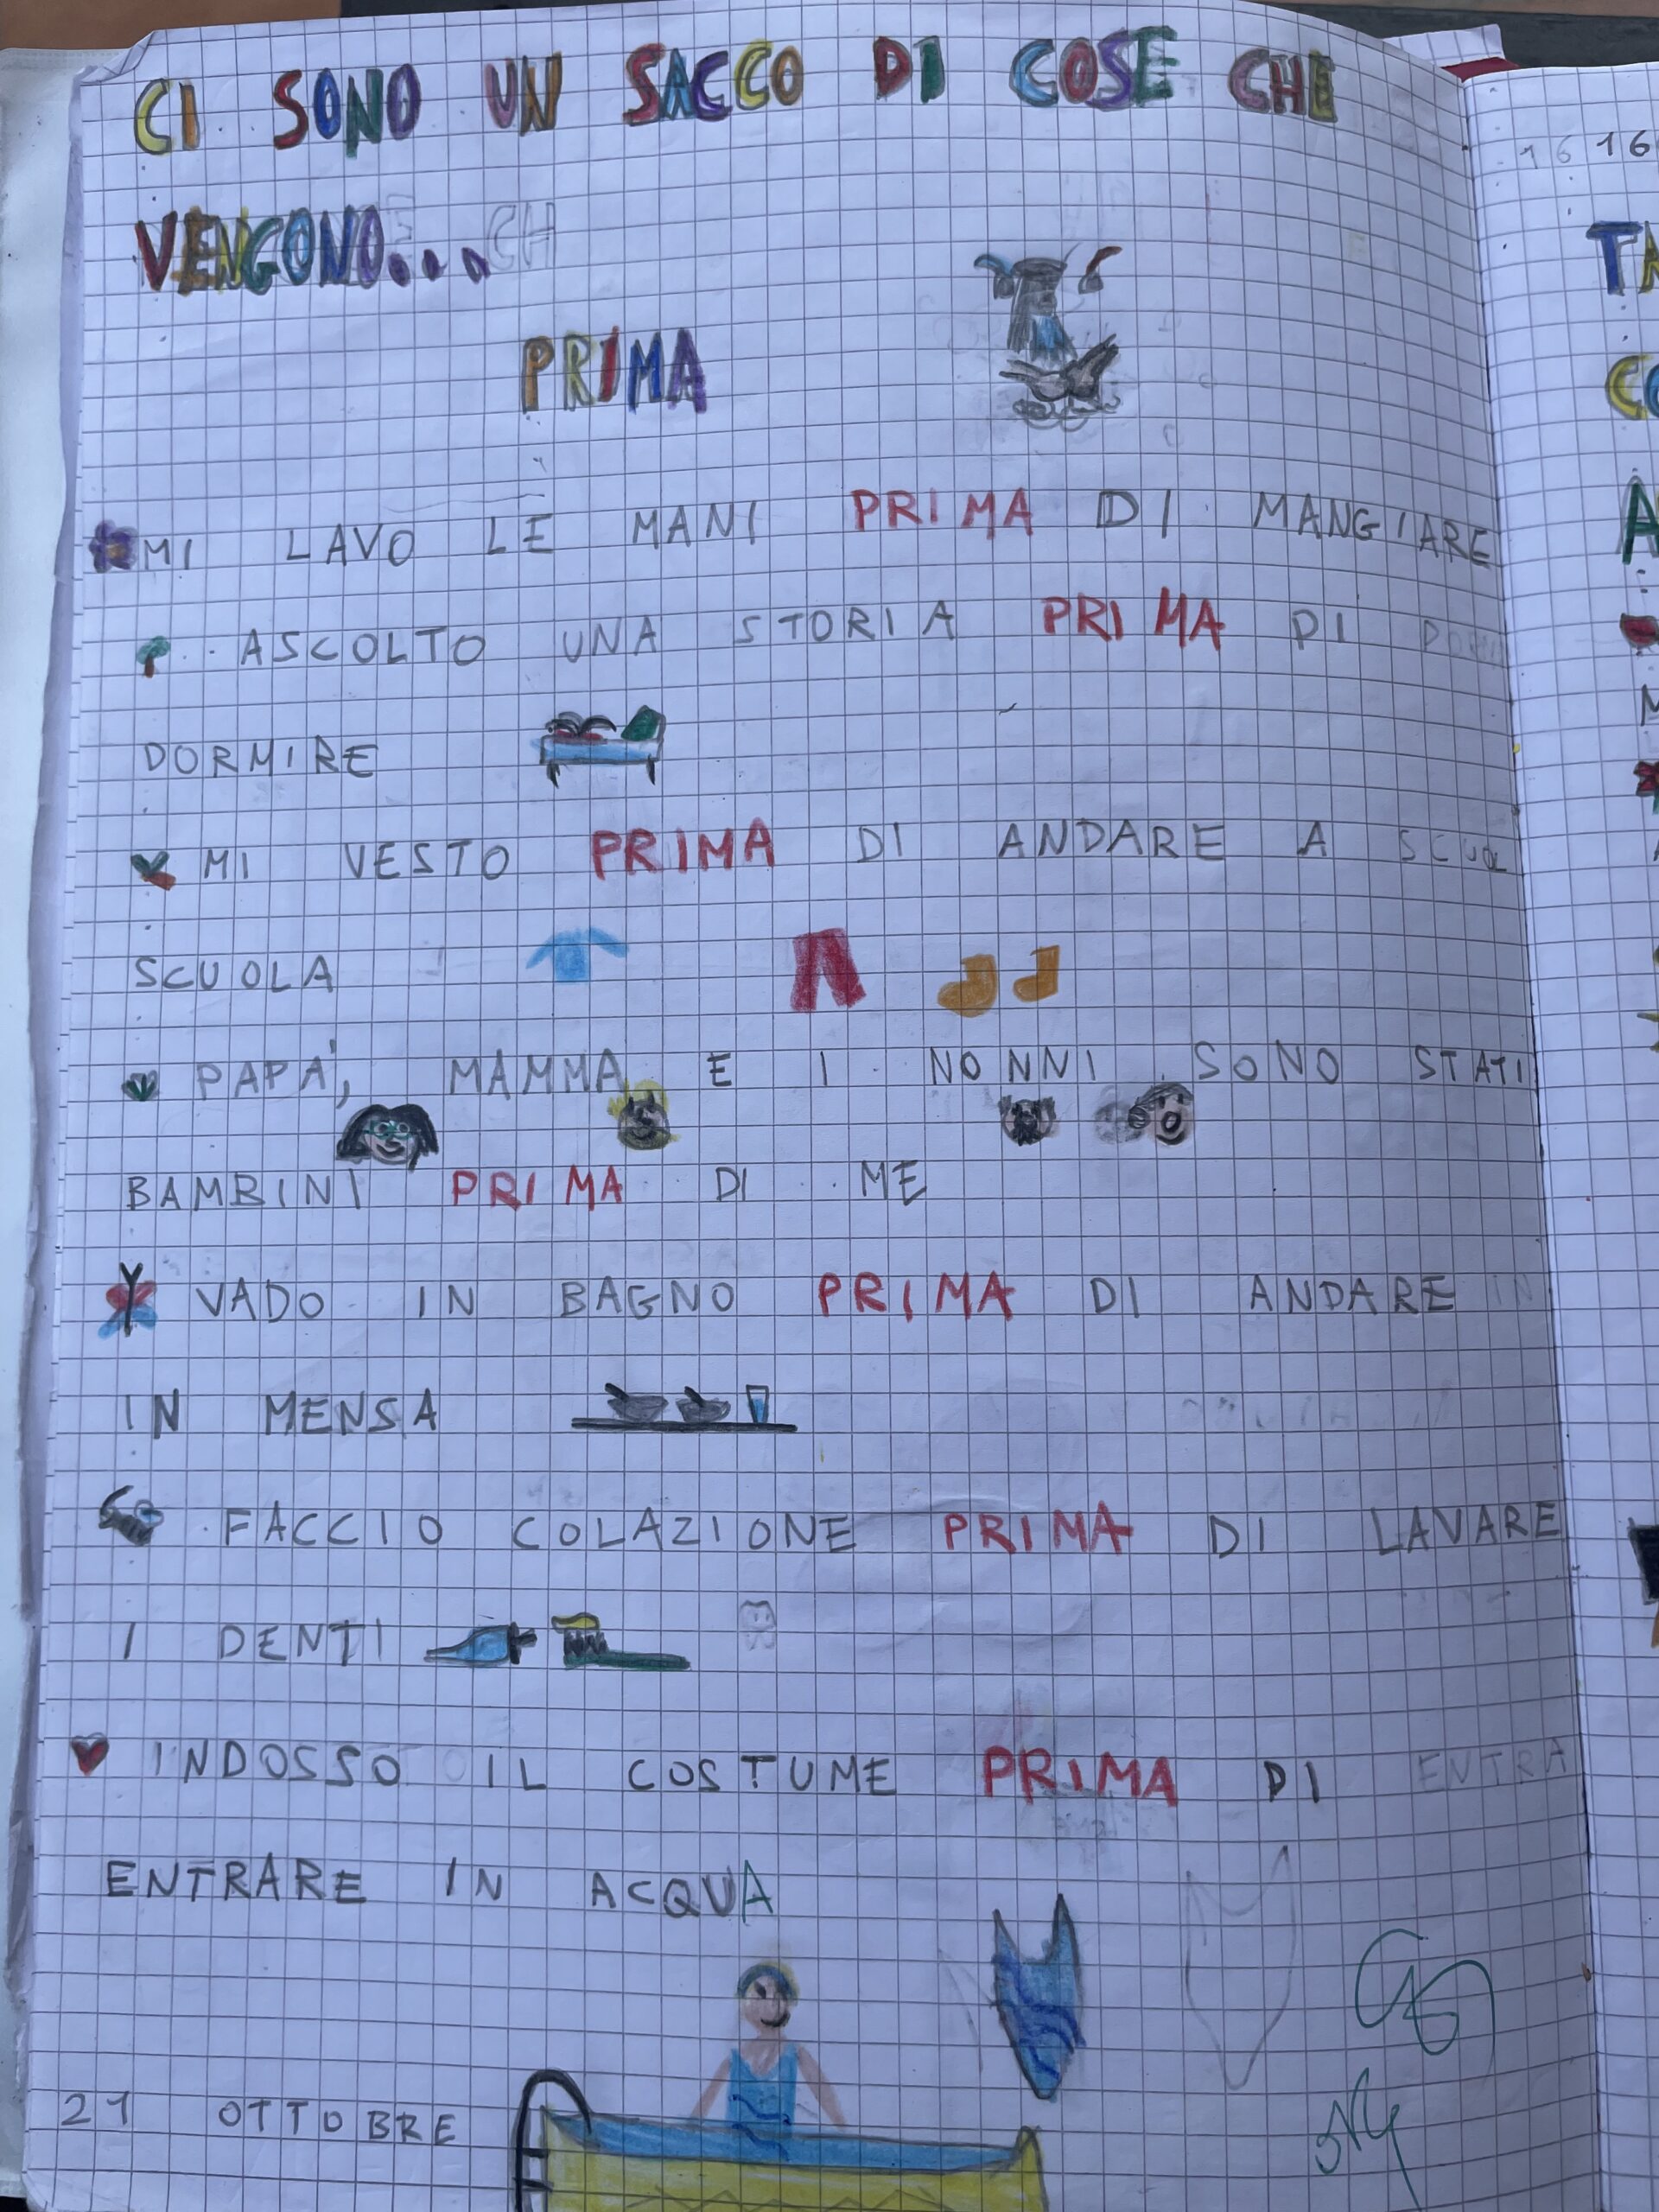 CI SONO UN SACCO DI COSE CHE
VENGONO...
PRIMA
MI LAVO LE MANI PRIMA DI MANGIARE
ASCOLTO UNA STORIA PRIMA DI
DORMIRE
MI VESTO PRIMA DI ANDARE A SCUOL
SCUOLA
PAPA', MAMMA E I NONNI SONO STATI
BAMBINI PRIMA DI ME
VADO IN BAGNO PRIMA DI ANDARE IN
IN MENSA
FACCIO COLAZIONE PRIMA DI LAVARE
I DENTI
INDOSSO IL COSTUME PRIMA DI ENTRA
ENTRARE IN ACQUA
21 OTTOBRE
16 16
TA
CO
A